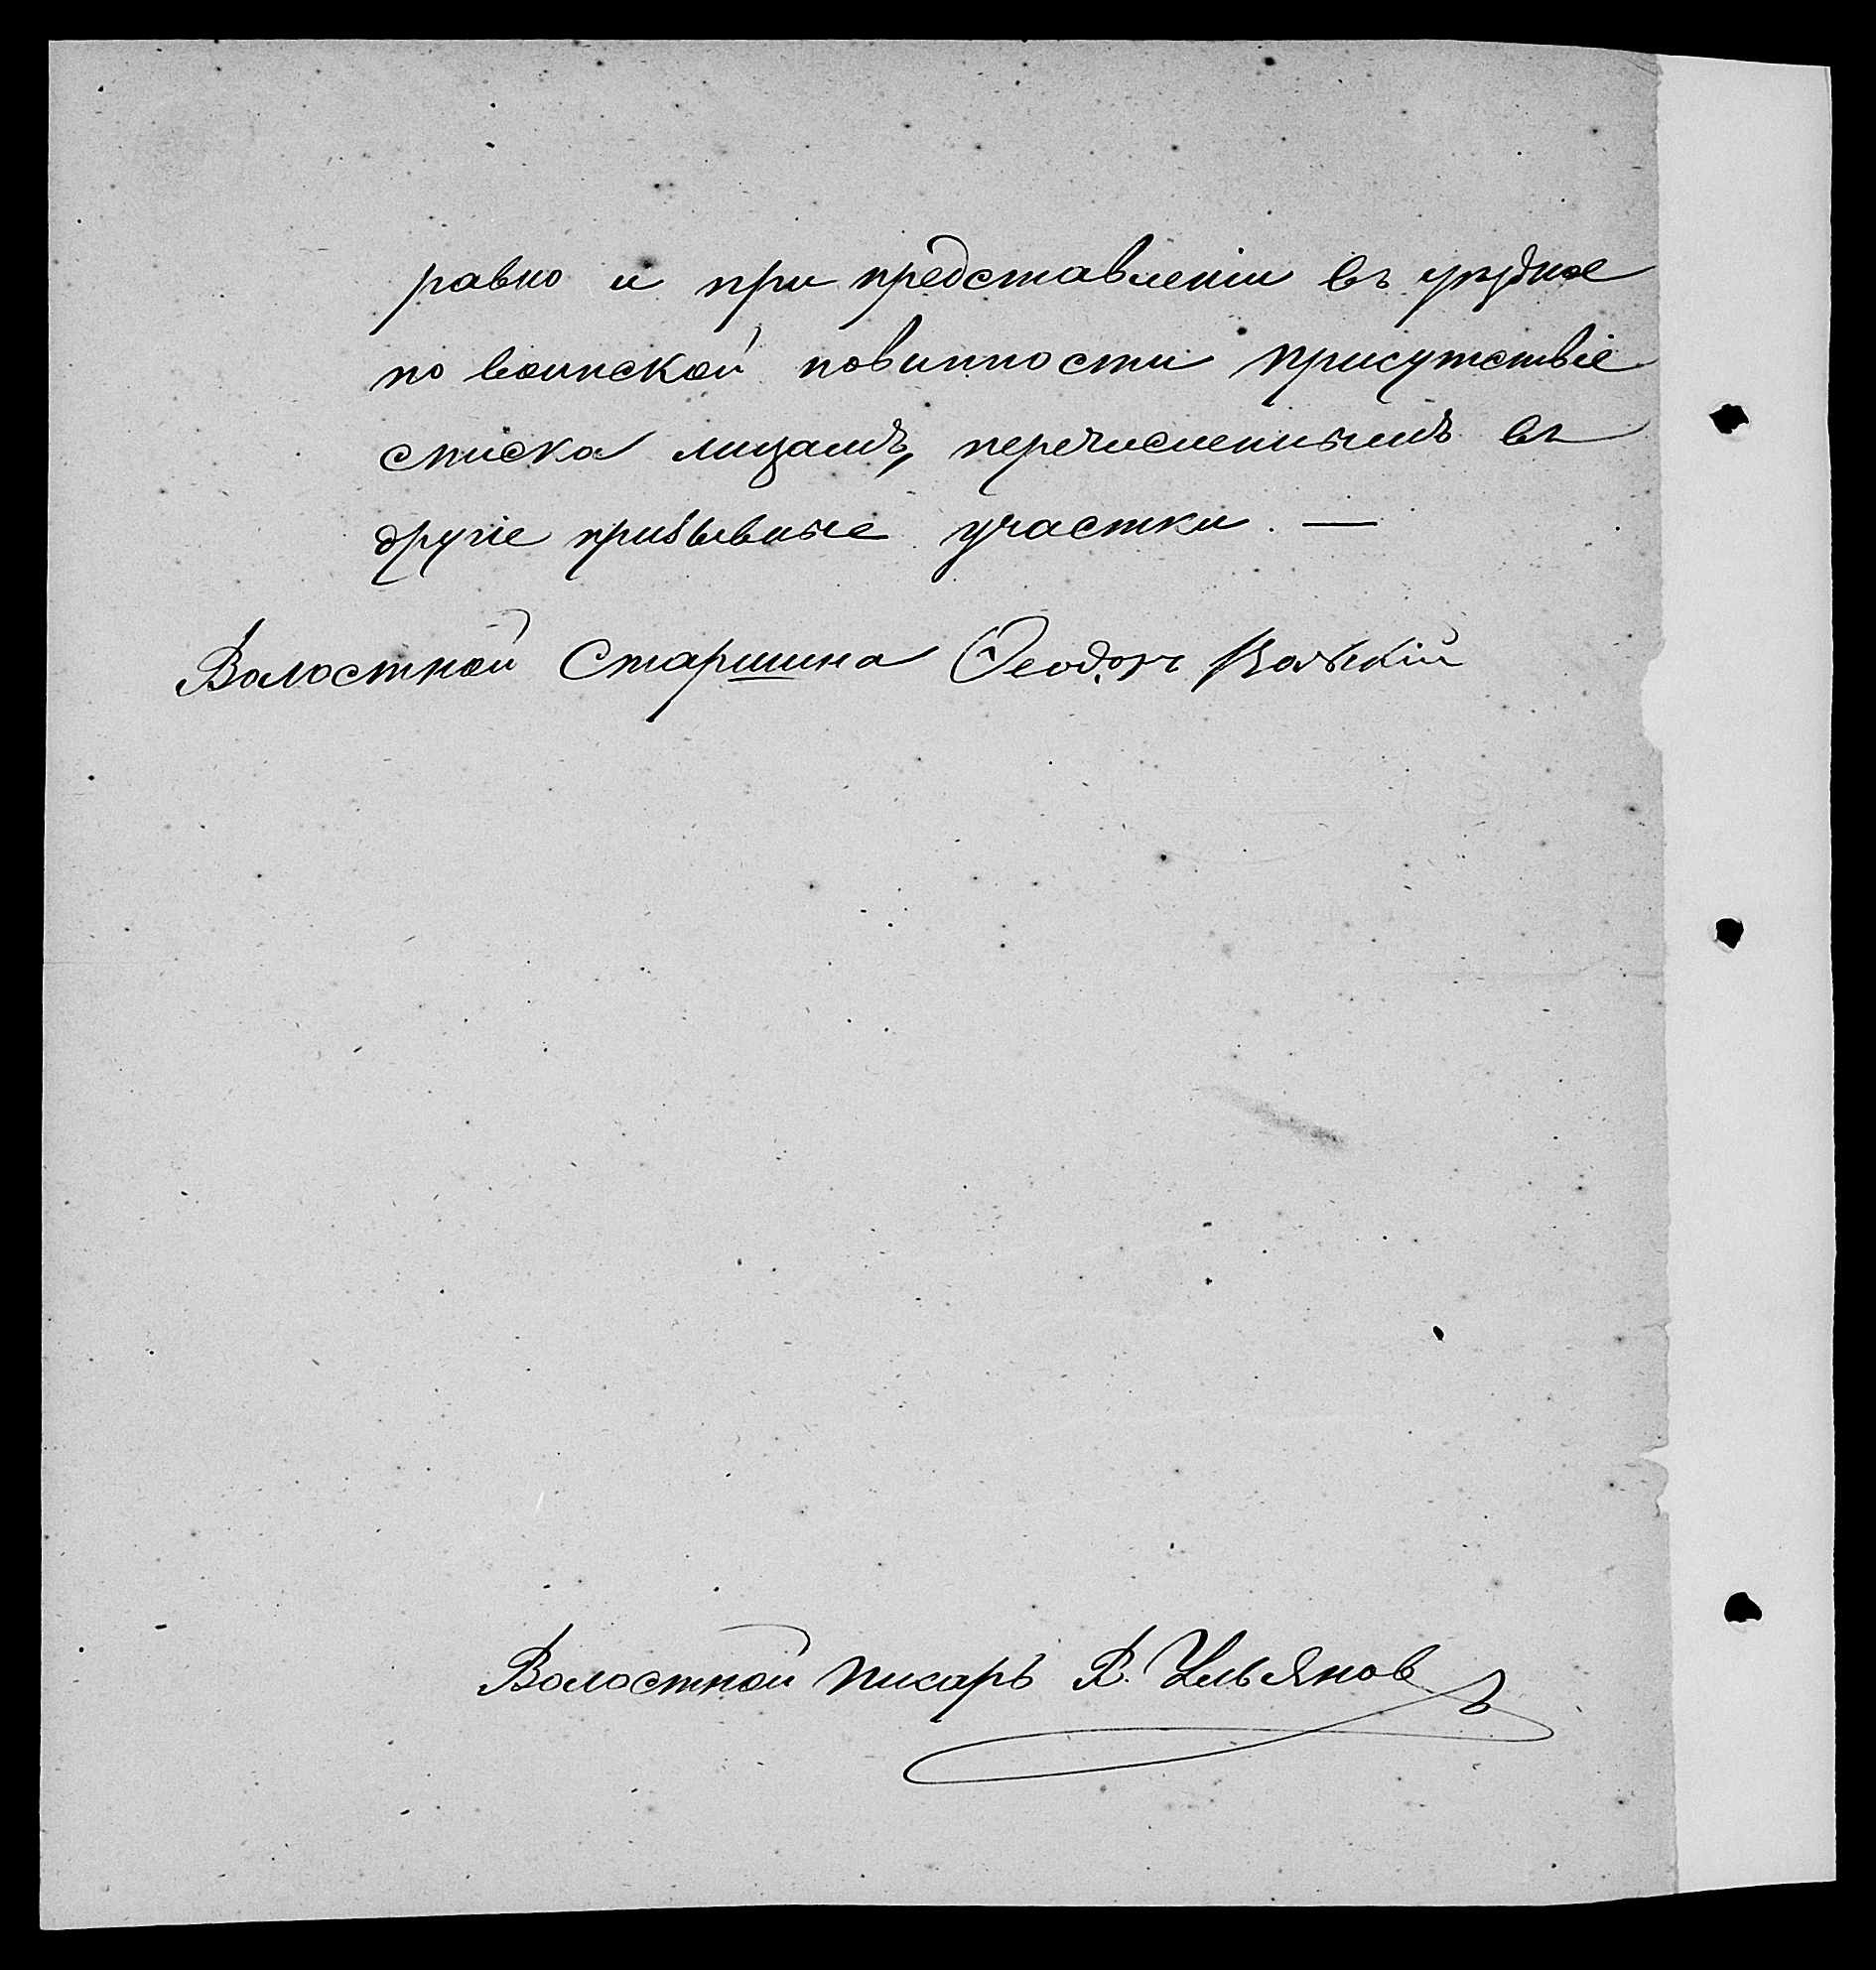 равно и при представленіи въ уѣздное
по воинской повинности присутствіе
списка лицамъ, перечисленнымъ въ
другіе призывные участки. —
Волостной Старшина Ѳеодоръ
Волостной писарь В. Ульяновъ